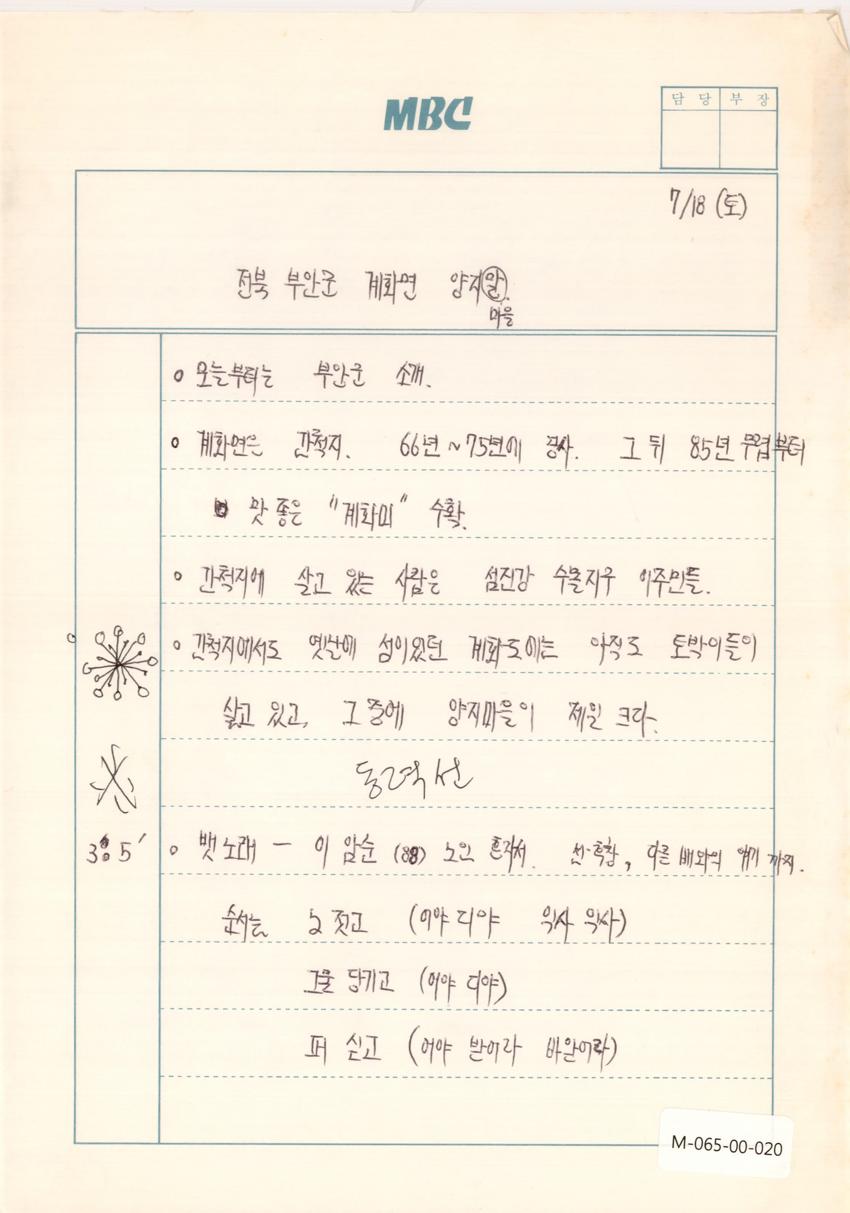 MBC
담 당 부 장
7/18 (토)
전북 부안군 계화면 양지말.
마을
o 오늘부터는 부안군 소개.
o 계화면은 간척지. 66년 ~ 75년에 공사. 그 뒤 85년 무렵부터
맛 좋은 "계화미" 수확.
o 간척지에 살고 있는 사람은 섬진강 수몰지구 이주민들.
o 간척지에서도 옛날에 섬이었던 계화도에는 아직도 토박이들이
살고 있고, 그 중에 양지마을이 제일 크다.
3:5′ o 뱃노래 — 이암순 (88) 노인 혼자서. 선·후창, 다른 배와의 얘기 까지.
순서는 노 젓고 (어야 디야 익사 익싸)
그물 당기고 (어야 디야)
퍼 싣고 (어야 받어라 바랃어라)
M-065-00-020